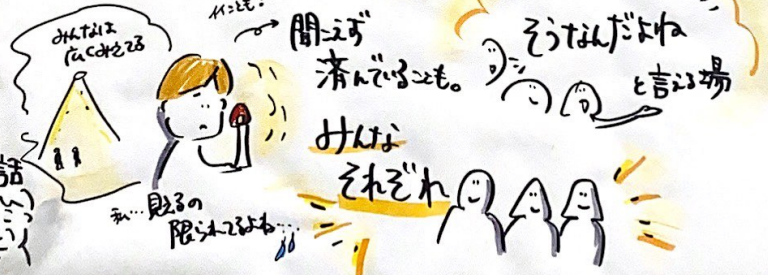 イイことも。
みんなは
広くみえてる
聞こえず
済んでいることも。
そうなんだよね
と言える場
みんな
それぞれ
私…見えるの
限られてるよね…
話